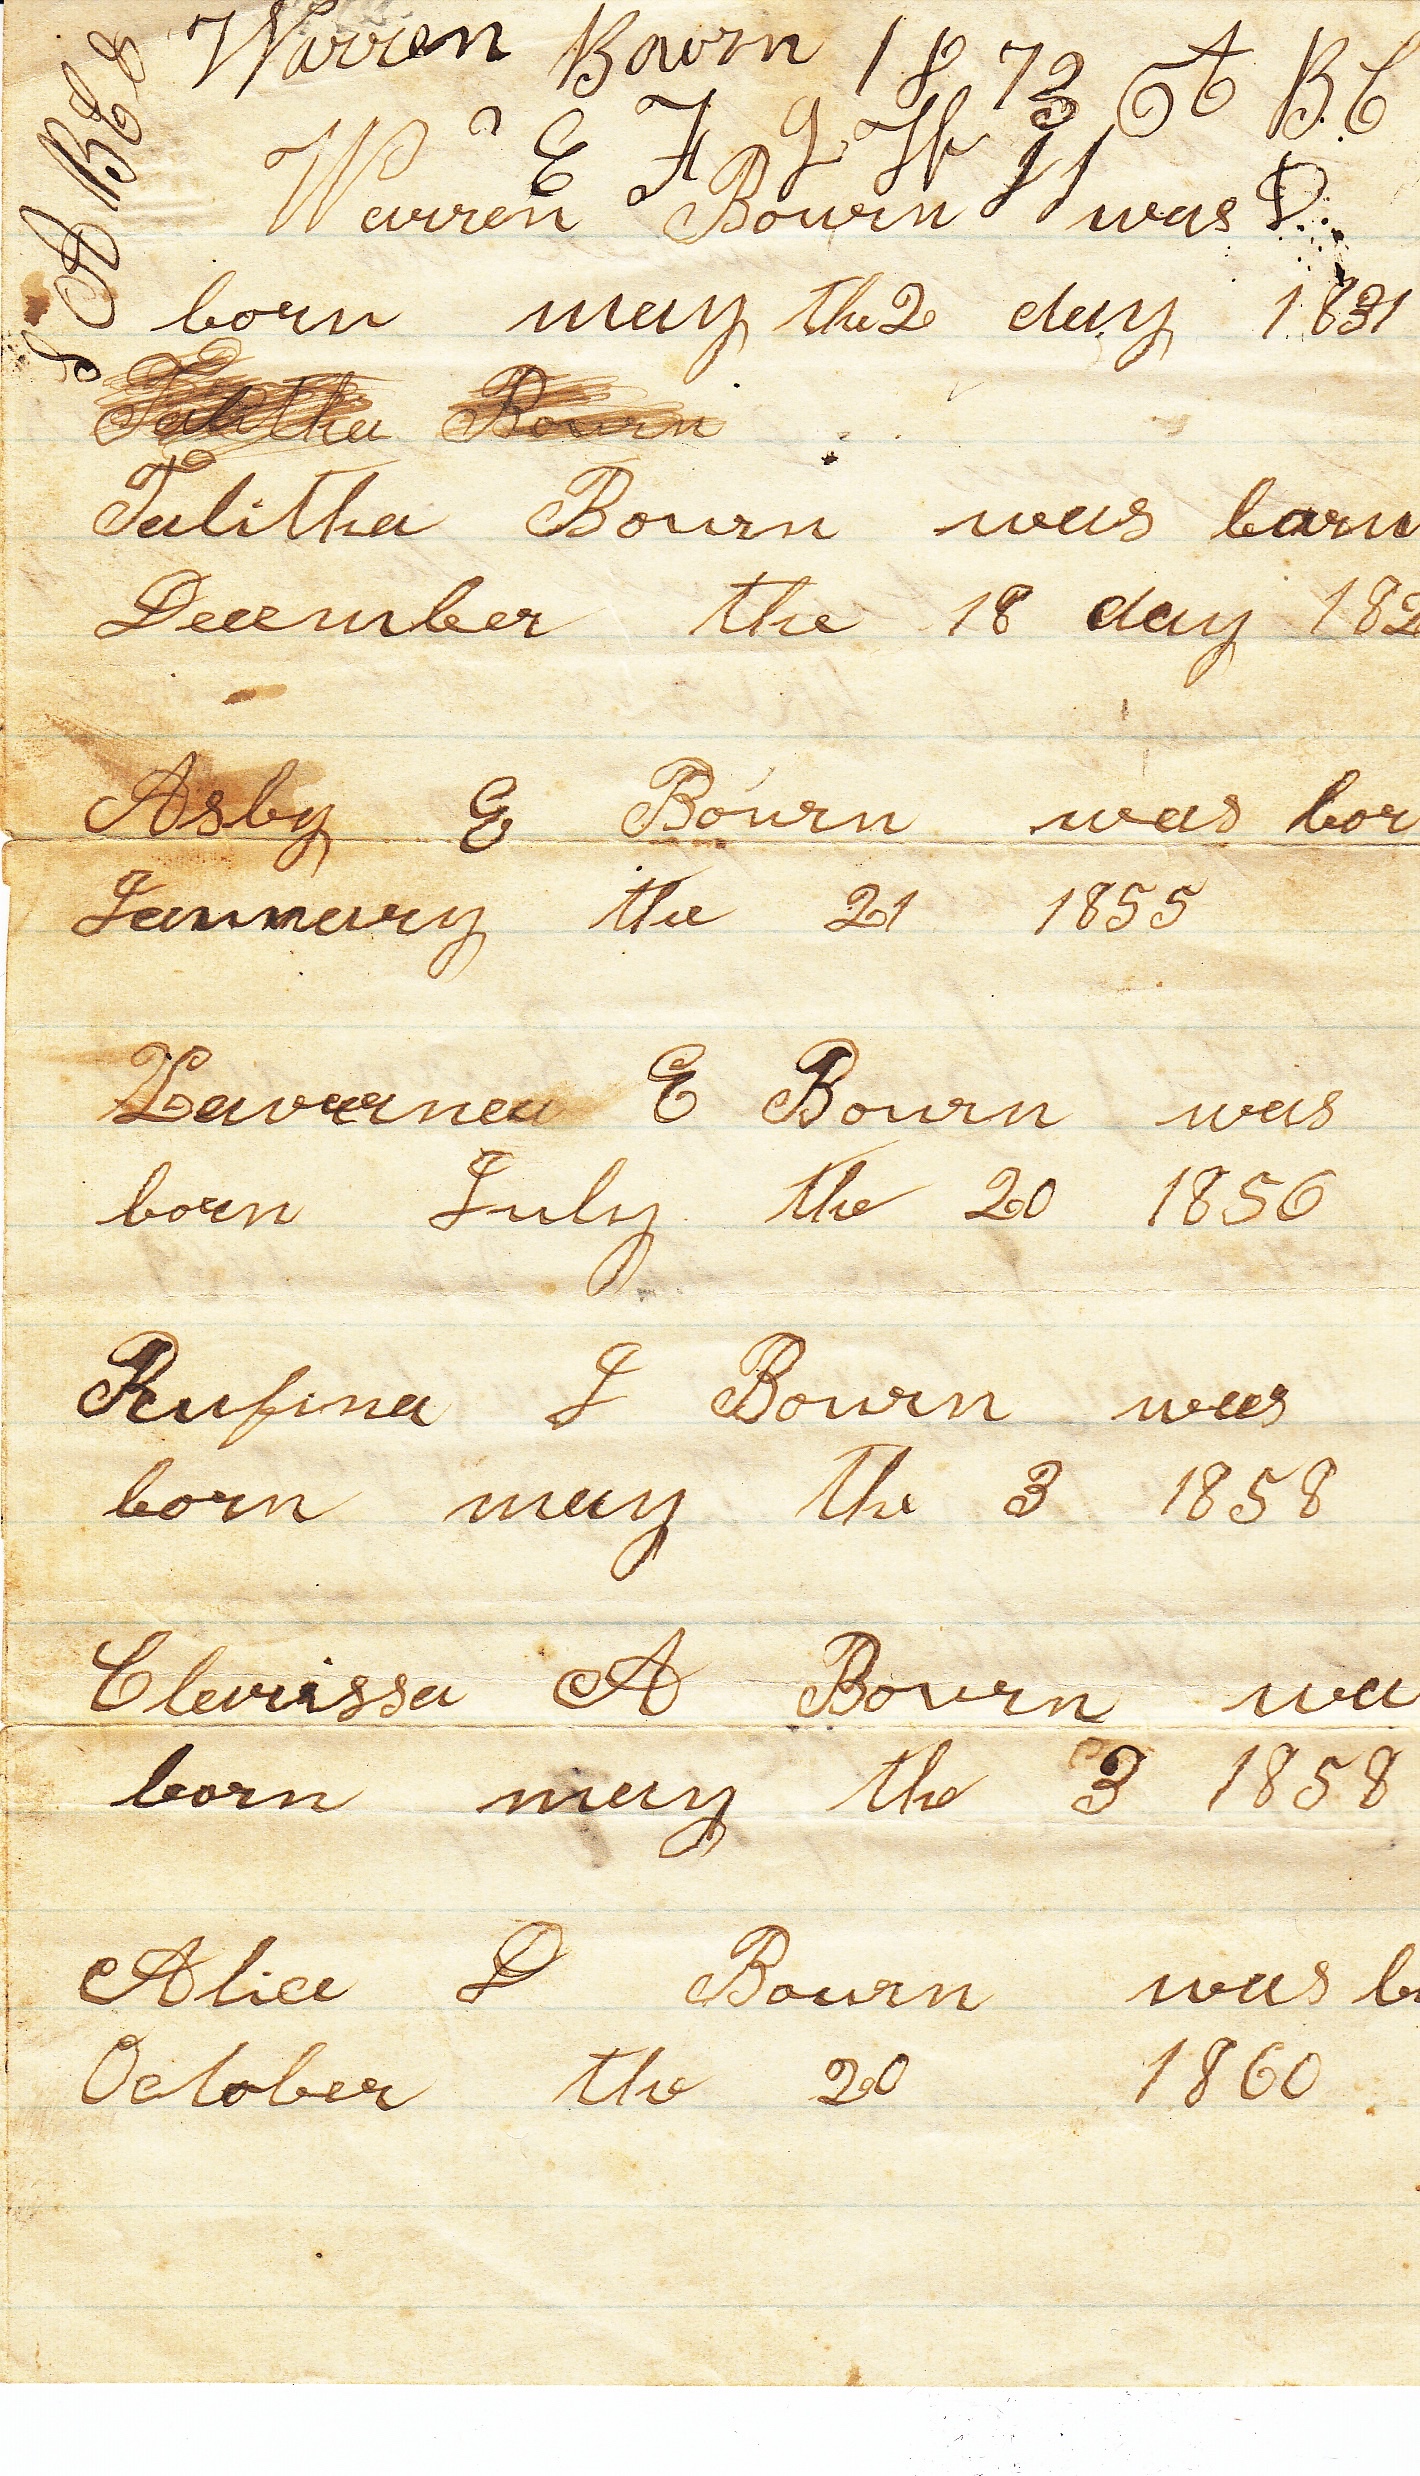 Warren Bourn 1873 A B.C
E F G H I J
Warren Bourn was D
born may the 2 day 1831
Talitha Bourn
Talitha Bourn was barn
December the 18 day 182
Asby E Bourn was bor
January the 21 1855
Lavernea E Bourn was
born July the 20 1856
Rufina J Bourn was
born may the 3 1858
Clarissa A Bourn wa
born may the 3 1858
Alice D Bourn was b
October the 20 1860
A B C